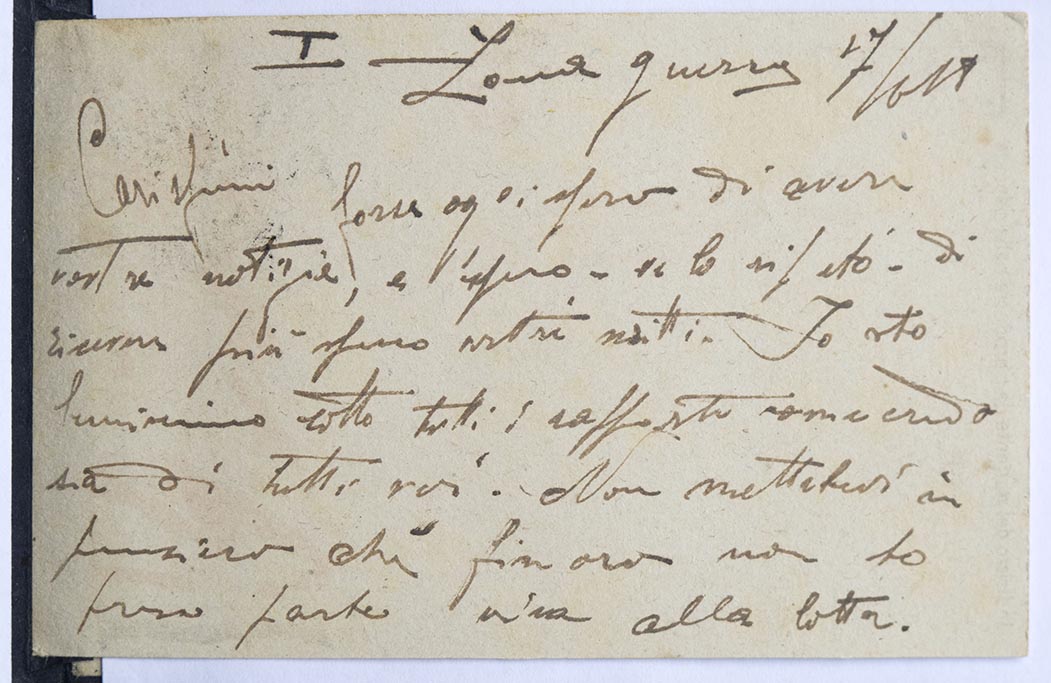 I Zona guerra 17/6/18
Carissimi forse oggi spero di avere
vostre notizie, e spero - ve lo ripetó - di
ricevere più spesso vostri scritti. Io sto
benissimo sotto tutti i rapporti come credo
sia di tutti voi. Non mettetevi in
pensiero che finora non ho
preso parte viva alla lotta.